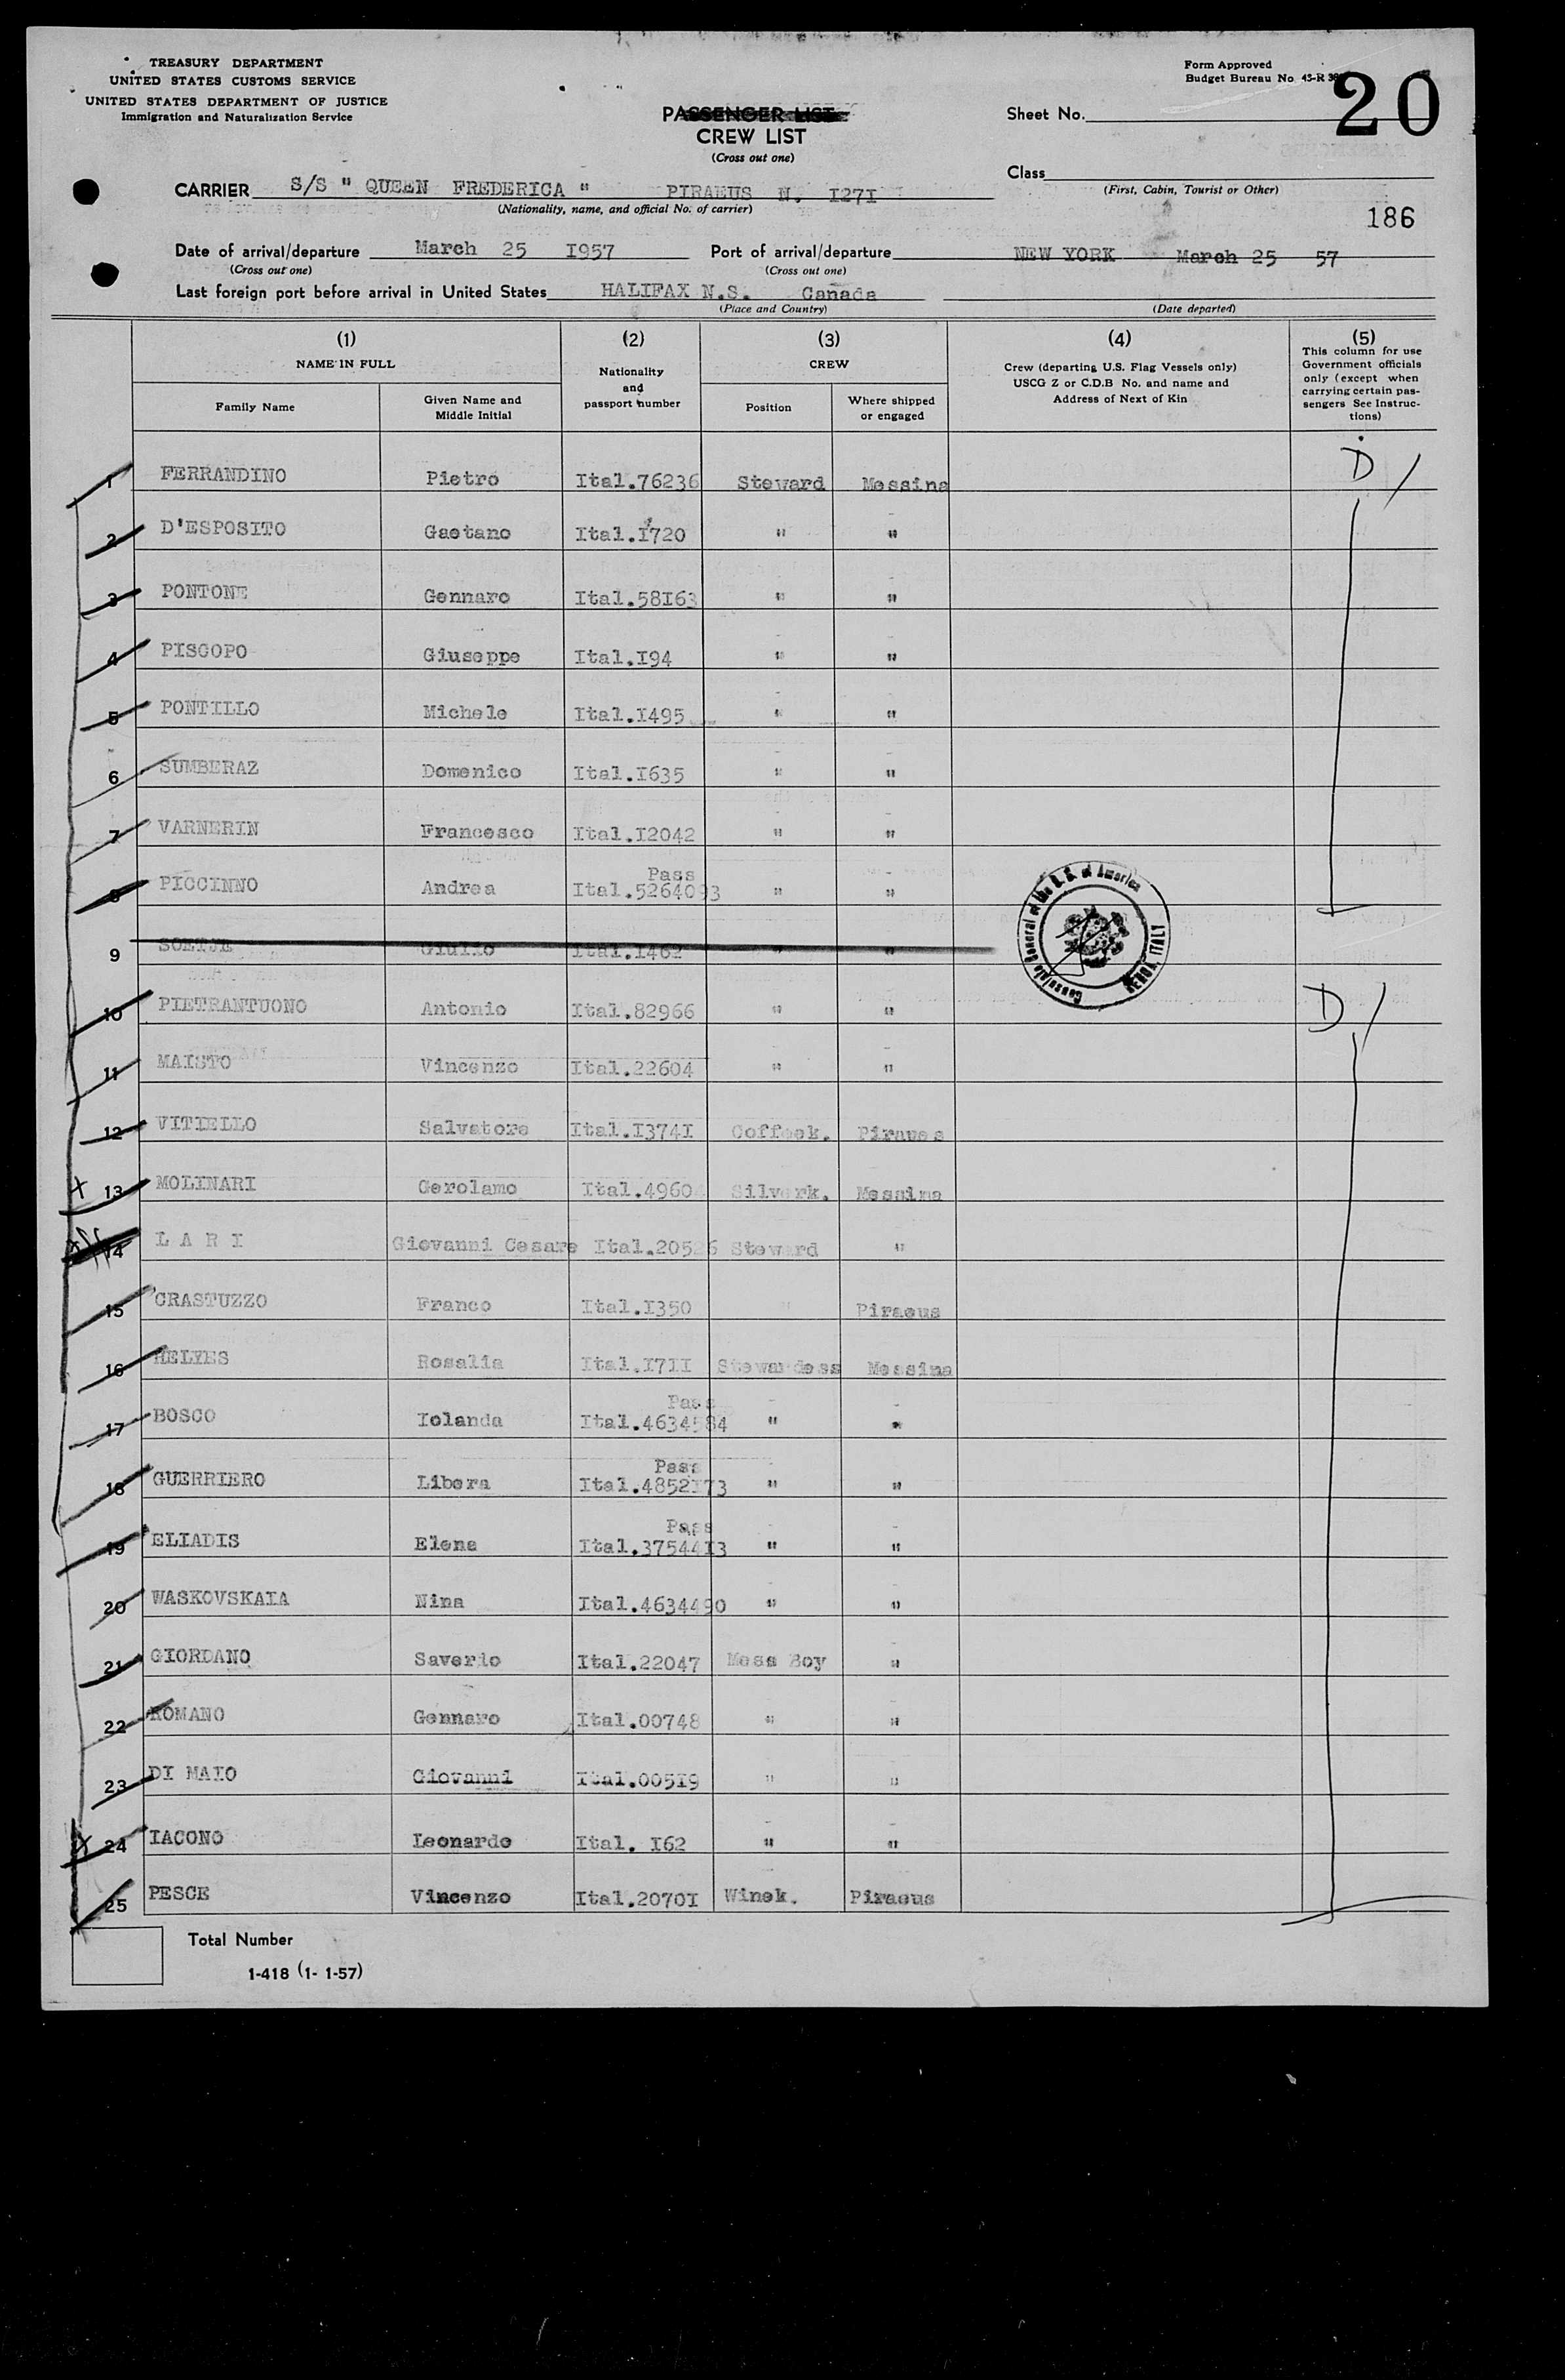 TREASURY DEPARTMENT
UNITED STATES CUSTOMS SERVICE
UNITED STATES DEPARTMENT OF JUSTICE
Immigration and Naturalization Service
Form Approved
Budget Bureau No. 43-R
20
PASSENGER LIST
CREW LIST
(Cross out one)
Sheet No.
Class
(First, Cabin, Tourist or Other)
CARRIER S/S " QUEEN FREDERICA " PIRAEUS N. I27I
(Nationality, name, and official No. of carrier)
186
Date of arrival/departure March 25 I957 Port of arrival/departure NEW YORK March 25 57
(Cross out one) (Cross out one)
Last foreign port before arrival in United States HALIFAX N.S. Canada
(Place and Country) (Date departed)
(1) (2) (3) (4) (5)
NAME IN FULL Nationality and passport number CREW Crew (departing U.S. Flag Vessels only) USCG Z or C.D.B No. and name and Address of Next of Kin This column for use Government officials only (except when carrying certain passengers See Instructions)
Family Name Given Name and Middle Initial Position Where shipped or engaged
1 FERRANDINO Pietro Ital.76236 Steward Messina D /
2 D'ESPOSITO Gaetano Ital.I720 " "
3 PONTONE Gennaro Ital.58I63 " "
4 PISCOPO Giuseppe Ital.I94 " "
5 PONTILLO Michele Ital.I495 " "
6 SUMBERAZ Domenico Ital.I635 " "
7 VARNERIN Francesco Ital.I2042 " "
Pass
8 PICCINNO Andrea Ital.5264093 " "
9 Giulio Ital.I462 " "
Consulate General of the U. S. of America
GENOA, ITALY
10 PIETRANTUONO Antonio Ital.82966 " " D /
11 MAISTO Vincenzo Ital.22604 " "
12 VITIELLO Salvatore Ital.I374I Coffeek. Piraues
X 13 MOLINARI Gerolamo Ital.4960 Silverk. Messina
14 L A R I Giovanni Cesare Ital.20526 Steward "
15 CRASTUZZO Franco Ital.I350 " Piraeus
16 HELYES Rosalia Ital.I7II Stewardess Messina
Pass
17 BOSCO Iolanda Ital.4634584 " "
Pass
18 GUERRIERO Libera Ital.4852I73 " "
Pass
19 ELIADIS Elena Ital.37544I3 " "
20 WASKOVSKAIA Nina Ital.4634490 " "
21 GIORDANO Saverio Ital.22047 Mess Boy "
22 ROMANO Gennaro Ital.00748 " "
23 DI MAIO Giovanni Ital.005I9 " "
X 24 IACONO Leonardo Ital. I62 " "
25 PESCE Vincenzo Ital.2070I Winek. Piraeus
Total Number
1-418 (1- 1-57)